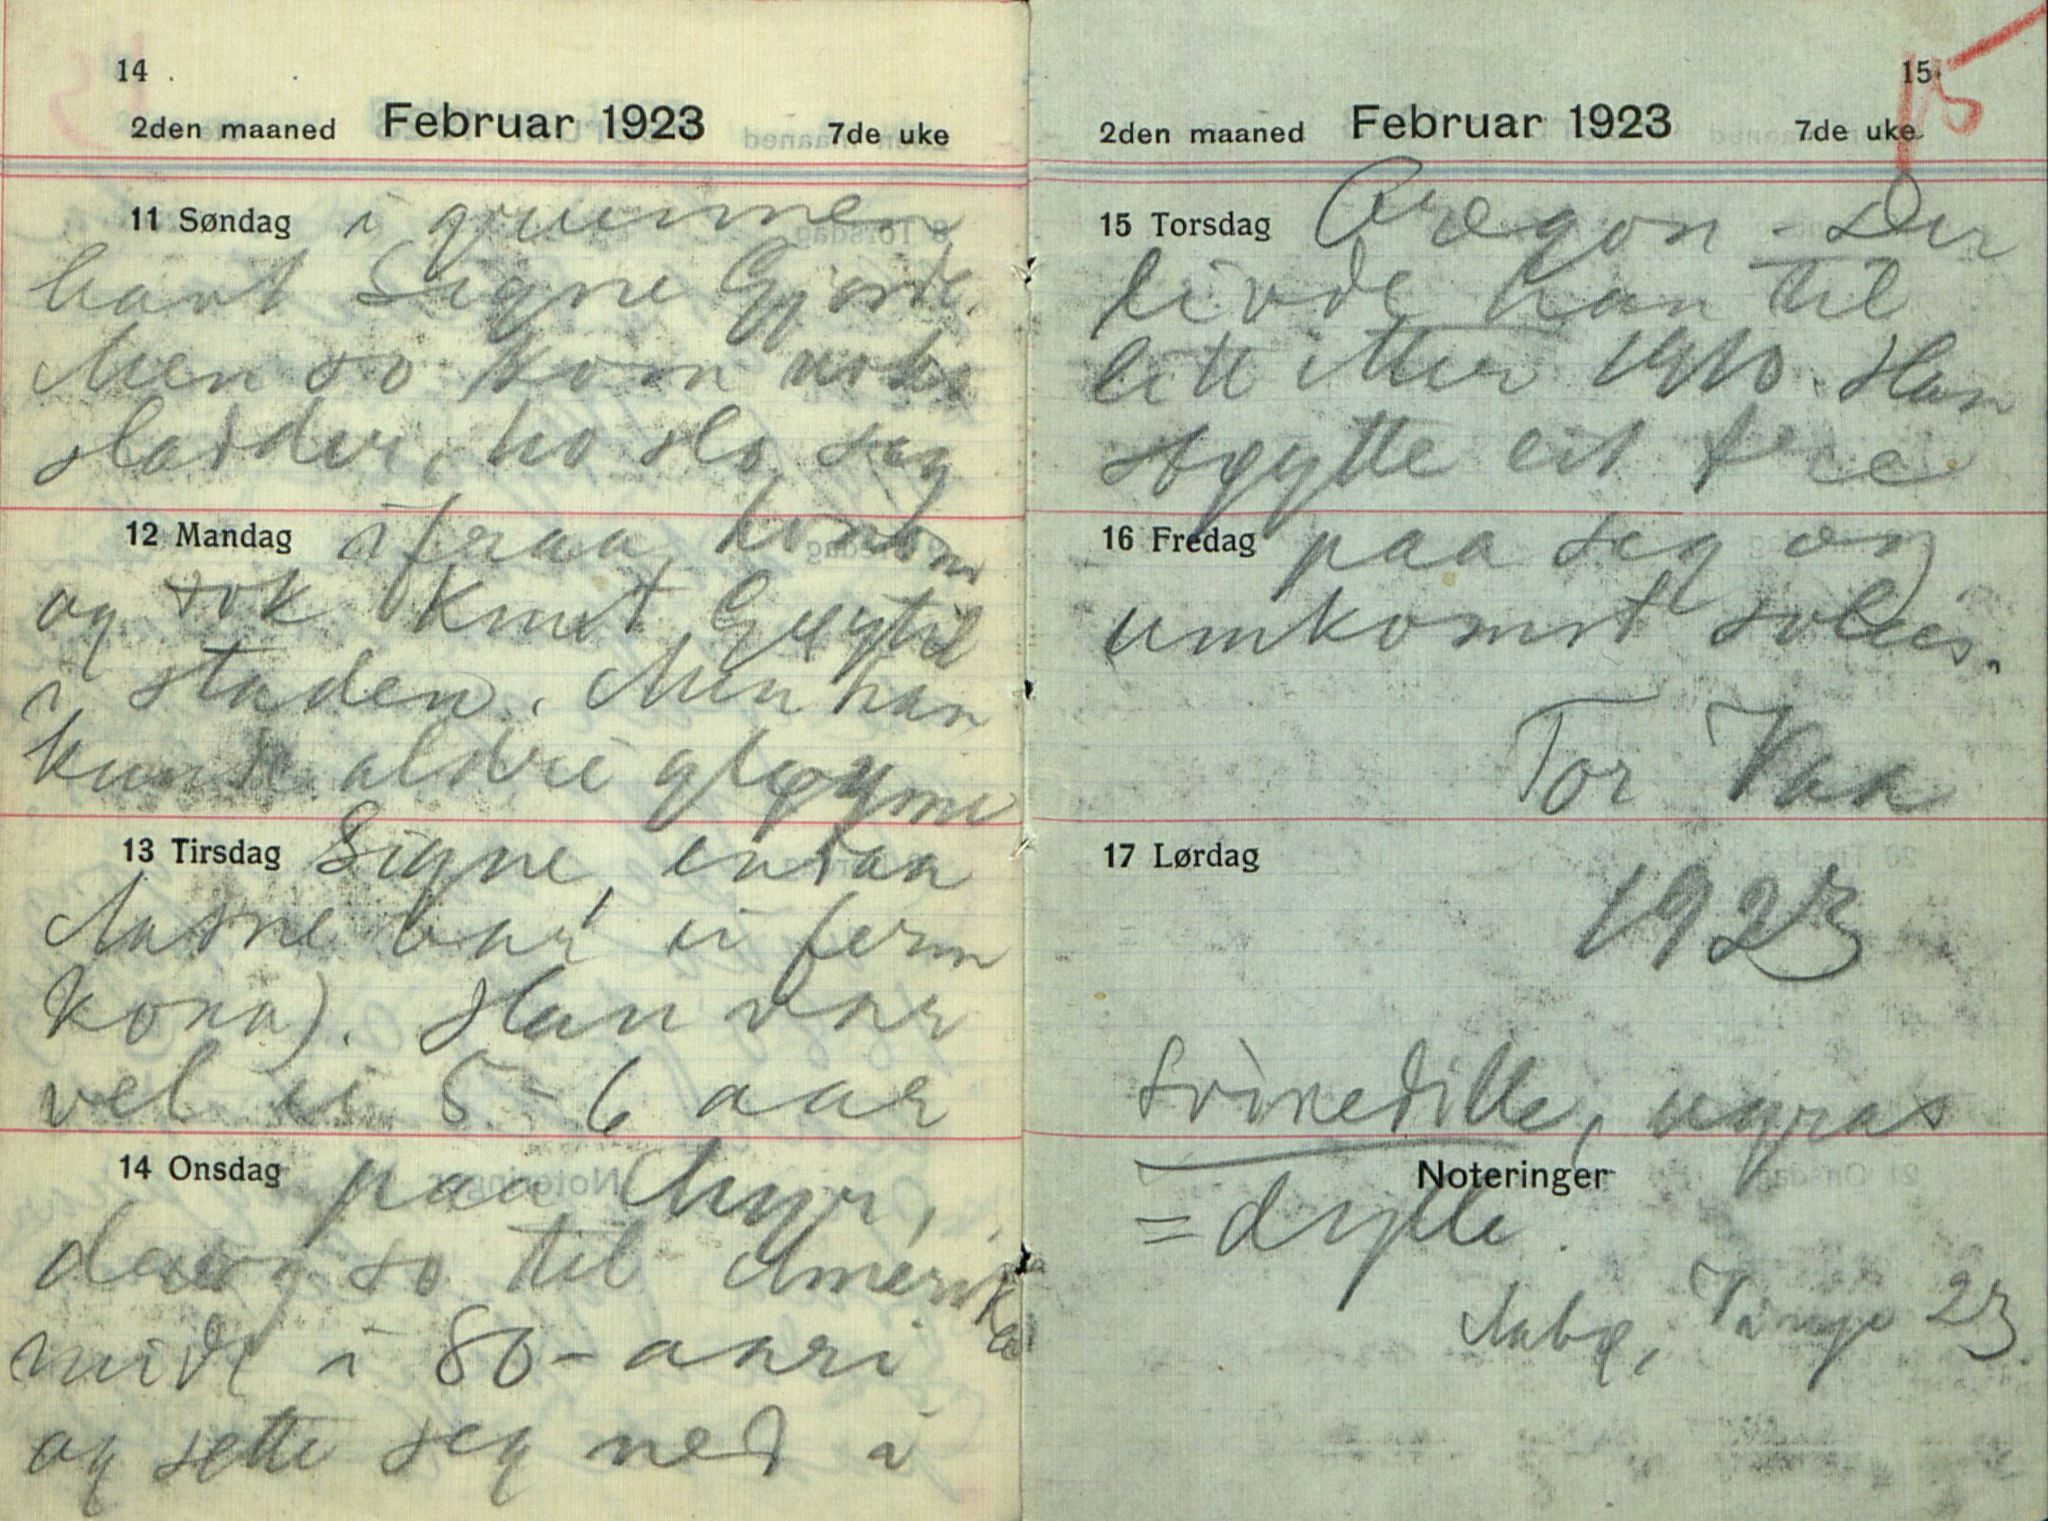 14
2den maaned Februar 1923 7de uke
11 Søndag i gruenne
hant Signe Gjorde.
Men so kom noko
sladder, ho slo seg
12 Mandag ifraa honom
og tok Knut
i staden. Men han
kunde aldri gløyme
13 Tirsdag Signe, endaa
Aasne var ei ferm
kona). Han var
vel ei 5-6 aar
14 Onsdag paa Myr,
derog so til Amerika
midt i 80-aari
og sette seg ned i
15
15
2den maaned Februar 1923 7de uke
15 Torsdag Oregon - Der
livde han til
litt etter 1910. Han
støytte eit tre
16 Fredag paa seg og
umkomst soleis.
Tor Vaa
17 Lørdag
1923
Svinedille, ugras
Noteringer
= dylle.
Aabø, Vinje 23.